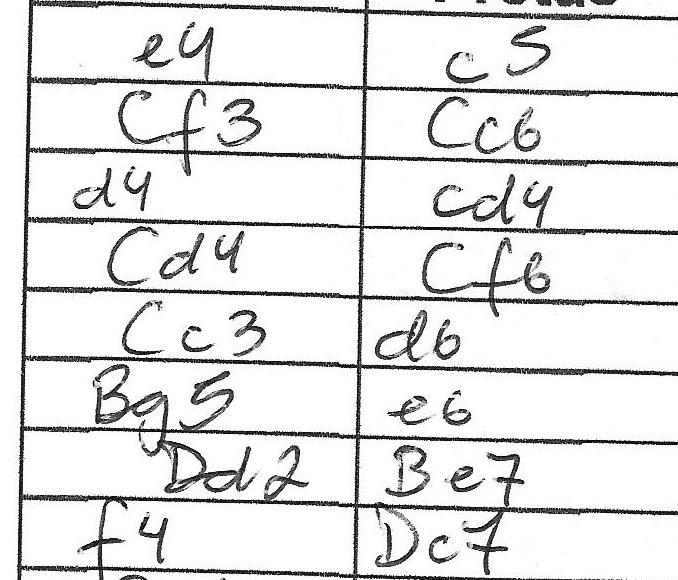 e4 c5
Cf3 Cc6
d4 cd4
Cd4 Cf6
Cc3 d6
Bg5 e6
Dd2 Be7
f4 Dc7